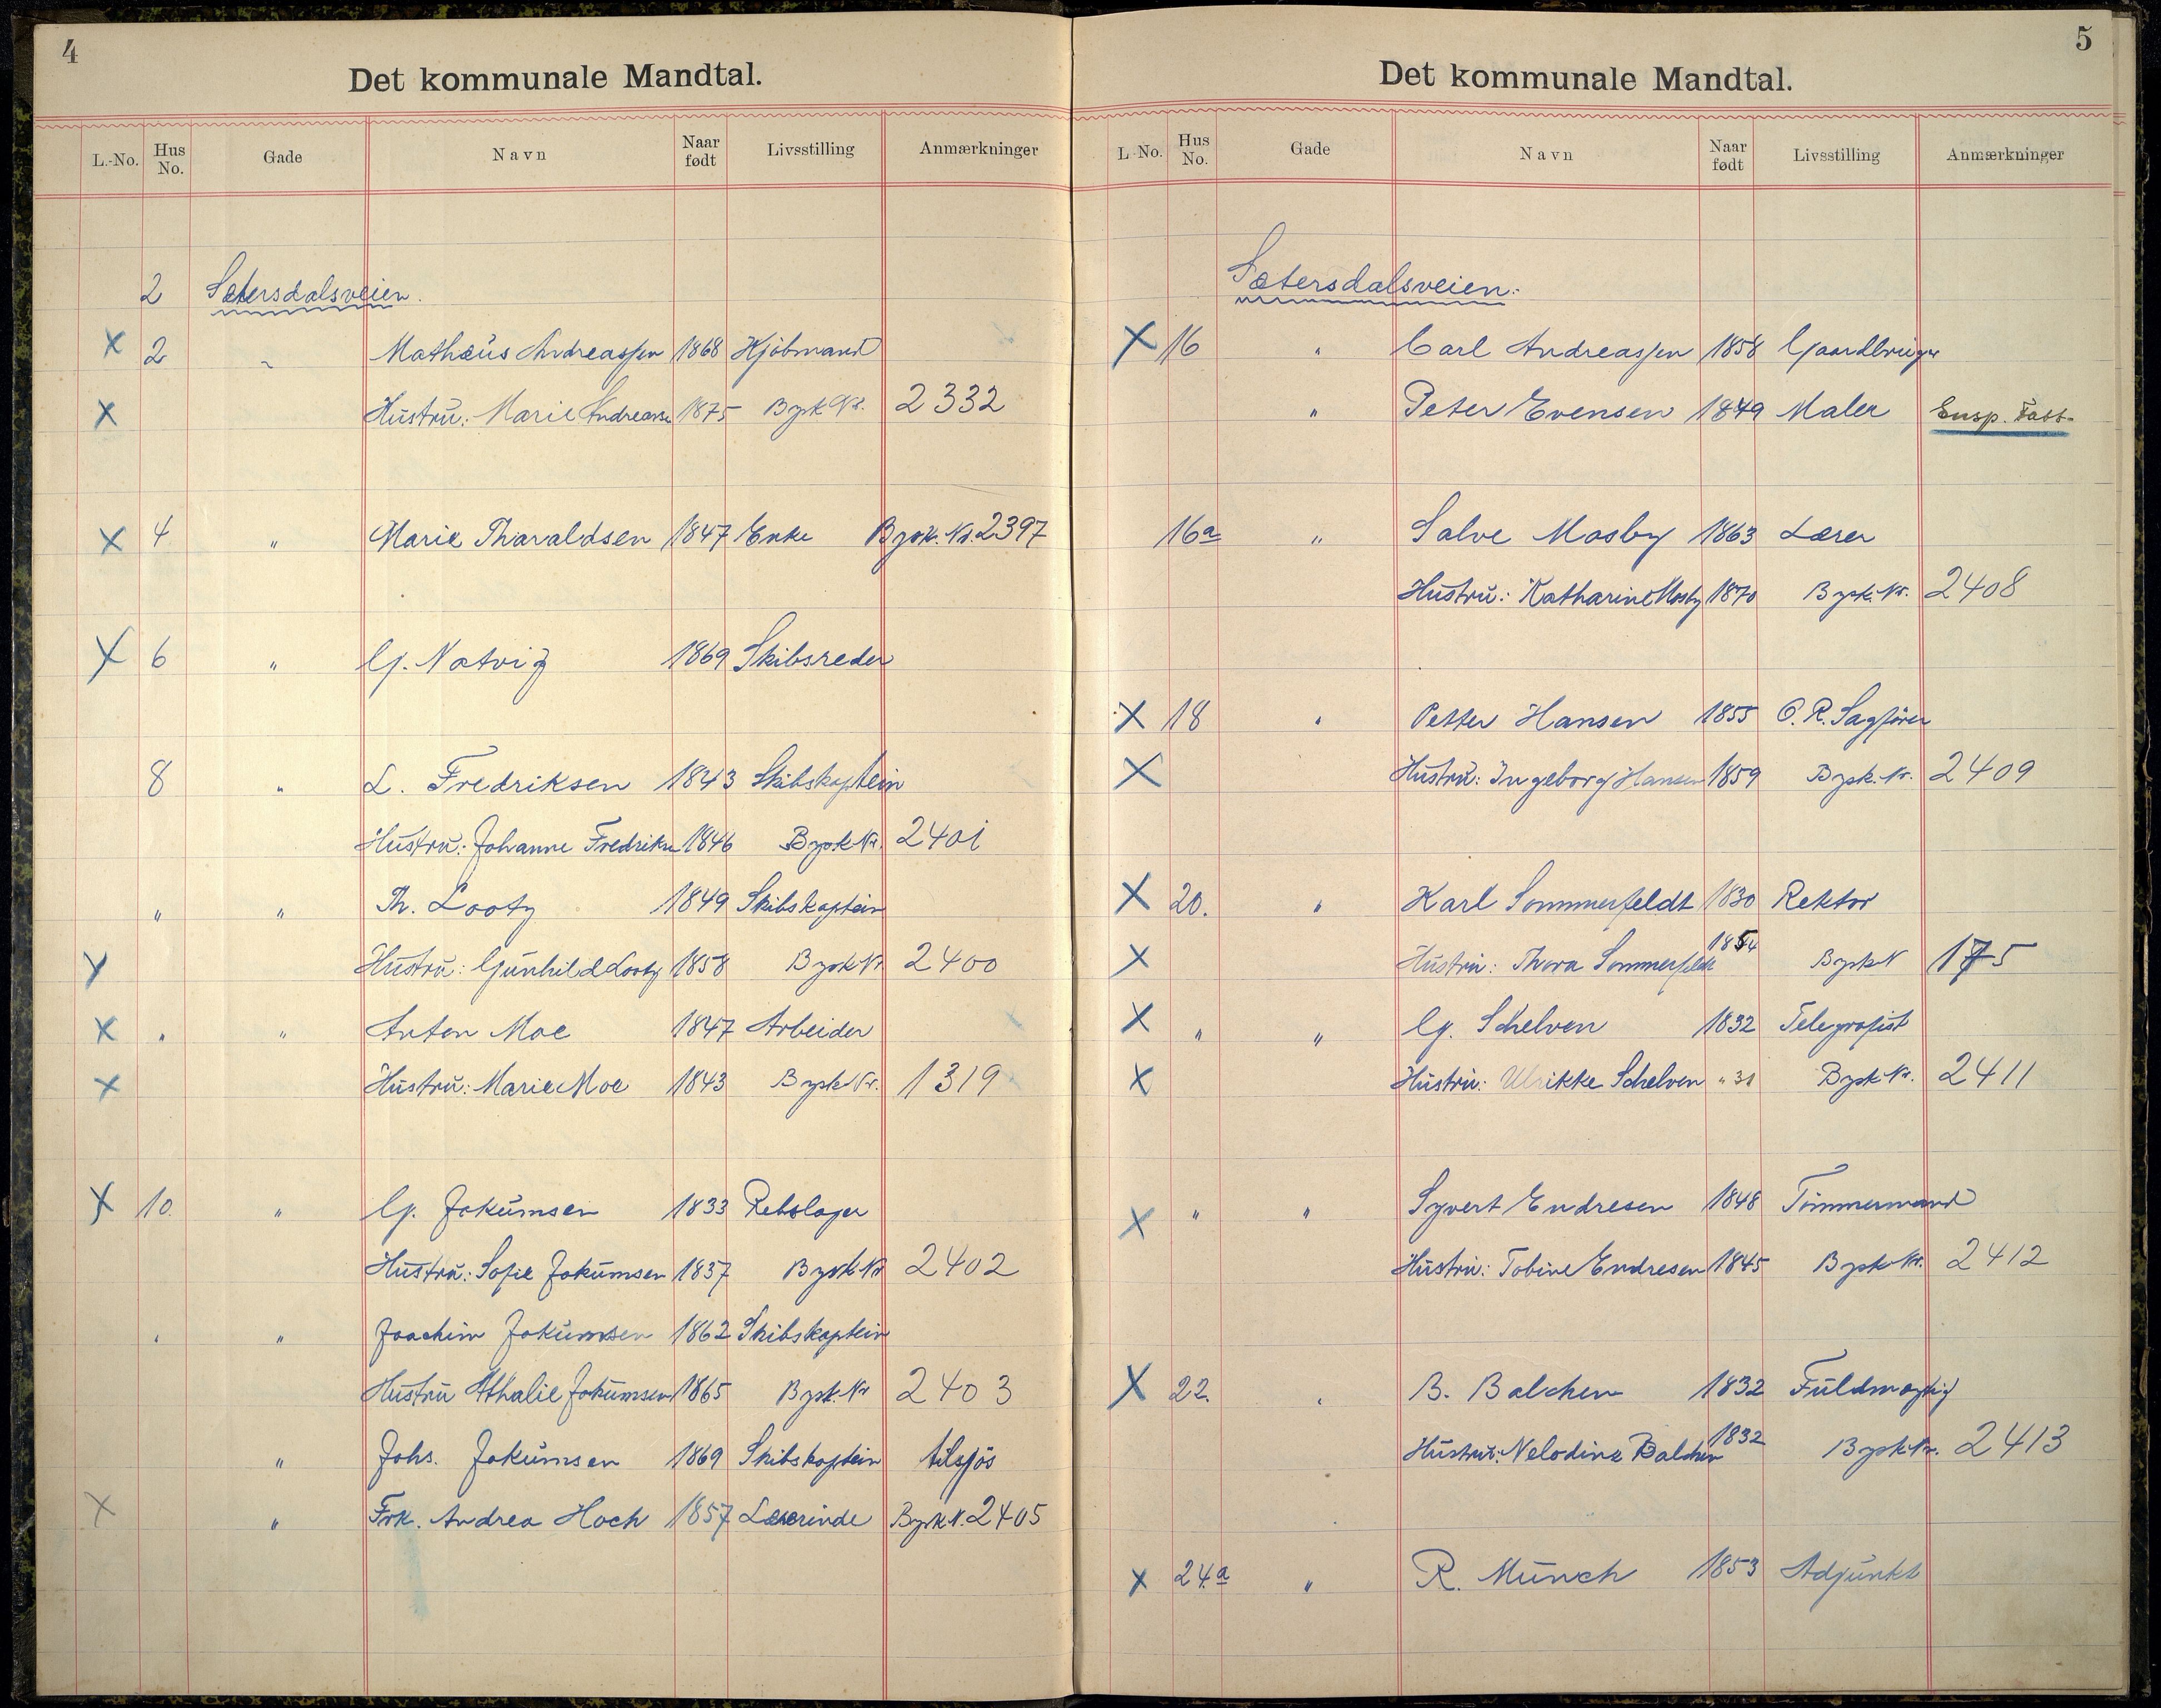 4
Det kommunale Mandtal.
L.-No. Hus No. Gade Navn Naar født Livsstilling Anmærkninger
2 Sætersdalsveien.
X 2 " Mathæus Andreassen 1868 Kjöbmand
X Hustru: Marie Andreasse 1875 Bysk Nr. 2332
X 4 " Marie Tharaldsen 1847 Enke Bysk. Nr. 2397
X 6 " G. Natvig 1869 Skibsreder
8 " L. Fredriksen 1843 Skibskaptein
Hustru: Johanne Fredriksn 1846 Bysk Nr. 2401
" " Th. Lootz 1849 Skibskaptein
X Hustru: Gunhild Lootz 1858 Bysk Nr 2400
X " " Anton Moe 1847 Arbeider
X Hustru: Marie Moe 1843 Bysk Nr. 1319
X 10. " G. Jokumsen 1833 Rebslager
Hustru: Sofie Jokumsen 1837 Bysk Nr 2402
" " Joachim Jokumsen 1862 Skibskaptein
Hustru Athalie Jokumsen 1865 Bysk. Nr 2403
" Johs. Jokumsen 1869 Skibskaptein tilsjös
X " Frk. Andrea Hoch 1857 Lærerinde Bysk N. 2405
5
Det kommunale Mandtal.
L-No. Hus No. Gade Navn Naar født Livsstilling Anmærkninger
Sætersdalsveien.
X 16 " Carl Andreassen 1858 Gaardbruger
" Peter Evensen 1849 Maler
16a " Salve Mosby 1863 Lærer
Hustru: Katharine Mosby 1870 Bysk. Nr. 2408
X 18 " Petter Hansen 1855 O. R. Sagfører
X Hustru: Ingeborg Hansen 1859 Bysk. Nr. 2409
X 20. " Karl Sommerfeldt 1830 Rektor
X Hustru: Thora Sommerfeldt Bysk N 175
X " " G. Schelven 1832 Telegrafist
X Hustru: Ulrikke Schelven " 31 Bysk Nr. 2411
X " " Syvert Endresen 1848 Tömmermand
Hustru: Tobine Endresen 1845 Bysk Nr. 2412
X 22. " B. Balchen 1832 Fuldmægtig
Hustru: Nelodine Balchen 1832 Bysk Nr. 2413
X 24.a " R. Münch 1853 Adjunkt